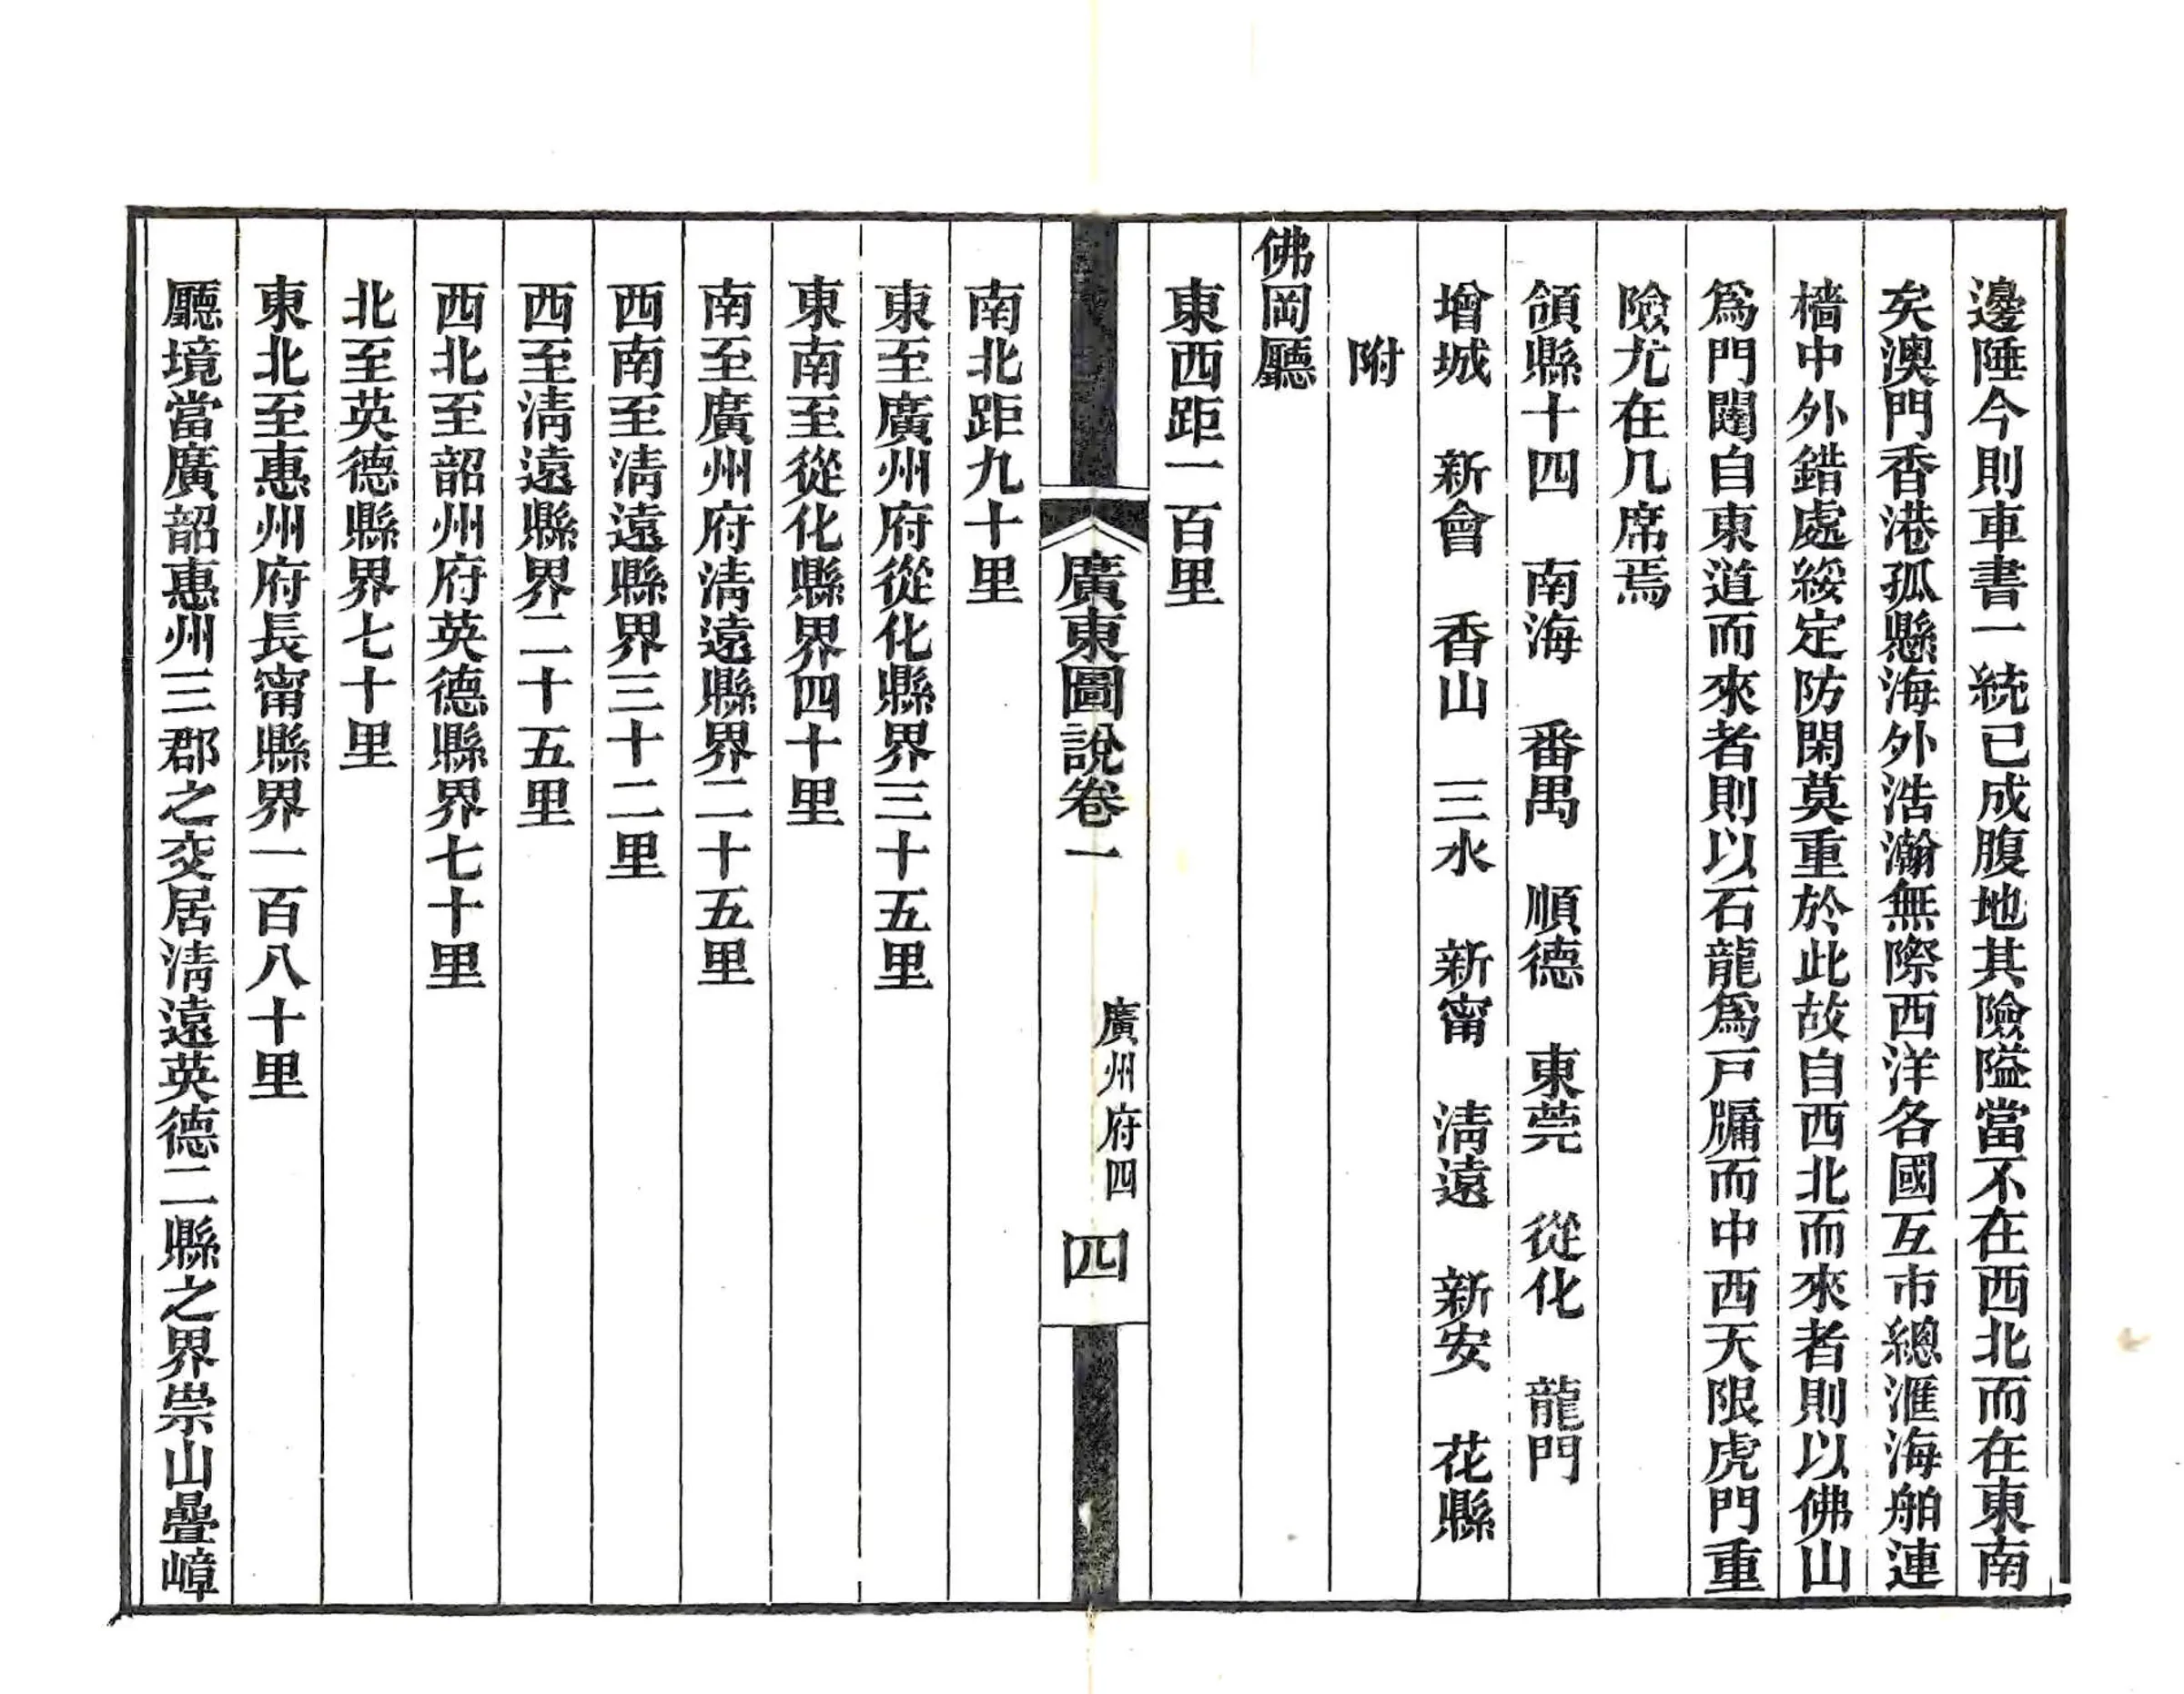 邊陲今則車書一統已成腹地其險隘當不在西北而在東南
矣澳門香港孤懸海外浩瀚無際西洋各國互市總滙海舶連
檣中外錯處綏定防閑莫重於此故自西北而來者則以佛山
爲門閾自東道而來者則以石龍爲戸牖而中西天限虎門重
險尤在几席焉
領縣十四　南海　番禺　順德　東莞　從化　龍門
增城　新會　香山　三水　新甯　淸遠　新安　花縣
附
佛岡廳
東西距一百里
廣東圖說卷一　廣州府四　四
南北距九十里
東至廣州府從化縣界三十五里
東南至從化縣界四十里
南至廣州府淸遠縣界二十五里
西南至淸遠縣界三十二里
西至淸遠縣界二十五里
西北至韶州府英德縣界七十里
北至英德縣界七十里
東北至惠州府長甯縣界一百八十里
廳境當廣韶惠州三郡之交居淸遠英德二縣之界崇山疊嶂